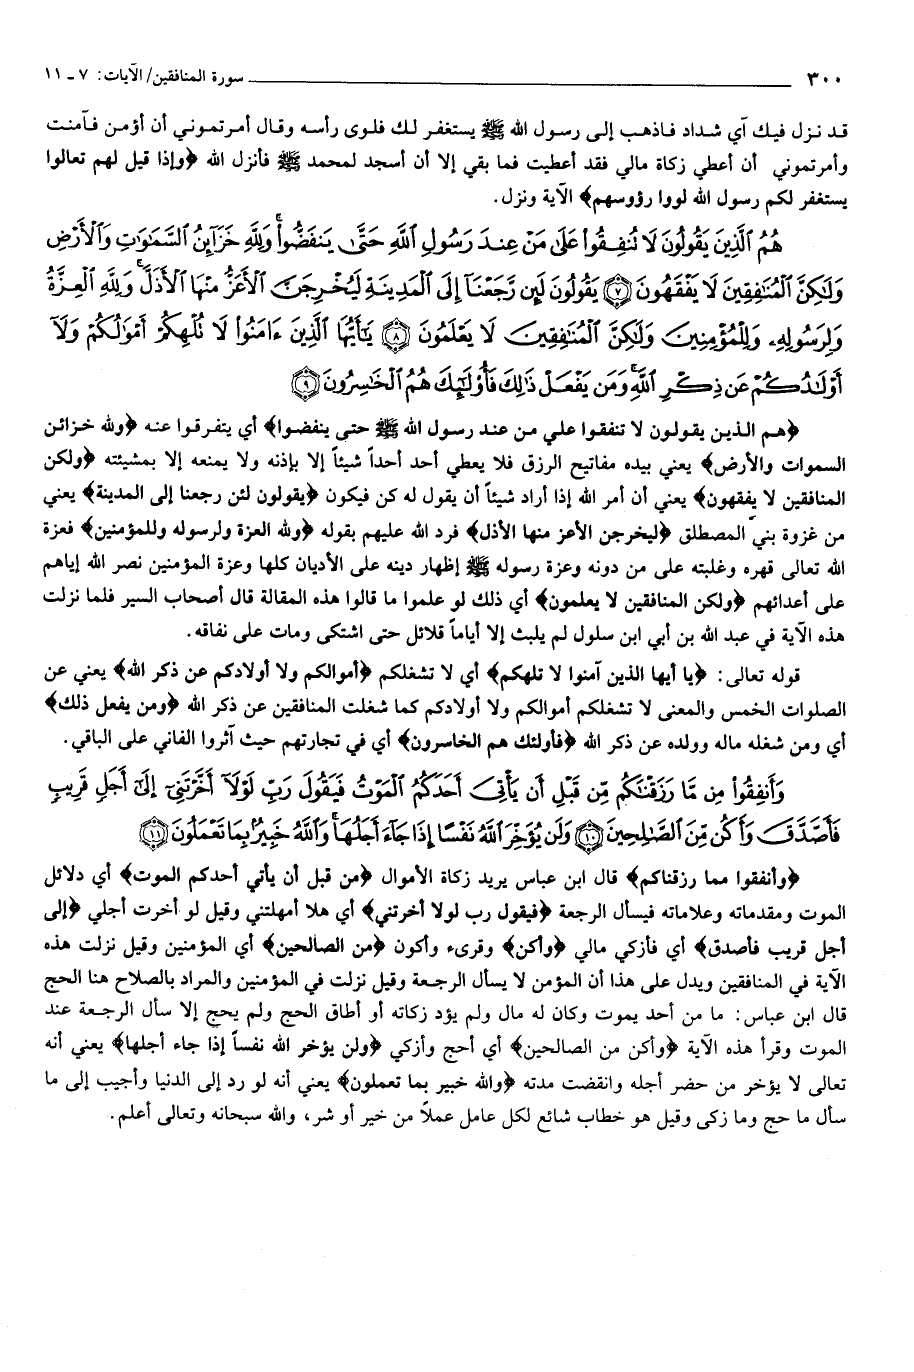 ٣٠٠ سورة المنافقين/ الآيات: ٧ ـ ١١
قد نزل فيك آي شداد فاذهب إلى رسول الله ﷺ يستغفر لك فلوى رأسه وقال أمرتموني أن أؤمن فآمنت
وأمرتموني أن أعطي زكاة مالي فقد أعطيت فما بقي إلا أن أسجد لمحمد ﷺ فأنزل الله ﴿وإذا قيل لهم تعالوا
يستغفر لكم رسول الله لووا رؤوسهم﴾ الآية ونزل.
هُمُ ٱلَّذِينَ يَقُولُونَ لَا تُنفِقُوا۟ عَلَىٰ مَنْ عِندَ رَسُولِ ٱللَّهِ حَتَّىٰ يَنفَضُّوا۟ ۗ وَلِلَّهِ خَزَآئِنُ ٱلسَّمَٰوَٰتِ وَٱلْأَرْضِ
وَلَٰكِنَّ ٱلْمُنَٰفِقِينَ لَا يَفْقَهُونَ ﴿٧﴾ يَقُولُونَ لَئِن رَّجَعْنَآ إِلَى ٱلْمَدِينَةِ لَيُخْرِجَنَّ ٱلْأَعَزُّ مِنْهَا ٱلْأَذَلَّ ۚ وَلِلَّهِ ٱلْعِزَّةُ
وَلِرَسُولِهِۦ وَلِلْمُؤْمِنِينَ وَلَٰكِنَّ ٱلْمُنَٰفِقِينَ لَا يَعْلَمُونَ ﴿٨﴾ يَٰٓأَيُّهَا ٱلَّذِينَ ءَامَنُوا۟ لَا تُلْهِكُمْ أَمْوَٰلُكُمْ وَلَآ
أَوْلَٰدُكُمْ عَن ذِكْرِ ٱللَّهِ ۚ وَمَن يَفْعَلْ ذَٰلِكَ فَأُو۟لَٰٓئِكَ هُمُ ٱلْخَٰسِرُونَ ﴿٩﴾
﴿هم الذين يقولون لا تنفقوا علي من عند رسول الله ﷺ حتى ينفضوا﴾ أي يتفرقوا عنه ﴿ولله خزائن
السموات والأرض﴾ يعني بيده مفاتيح الرزق فلا يعطي أحد أحداً شيئاً إلا بإذنه ولا يمنعه إلا بمشيئته ﴿ولكن
المنافقين لا يفقهون﴾ يعني أن أمر الله إذا أراد شيئاً أن يقول له كن فيكون ﴿يقولون لئن رجعنا إلى المدينة﴾ يعني
من غزوة بني المصطلق ﴿ليخرجن الأعز منها الأذل﴾ فرد الله عليهم بقوله ﴿ولله العزة ولرسوله وللمؤمنين﴾ فعزة
الله تعالى قهره وغلبته على من دونه وعزة رسوله ﷺ إظهار دينه على الأديان كلها وعزة المؤمنين نصر الله إياهم
على أعدائهم ﴿ولكن المنافقين لا يعلمون﴾ أي ذلك لو علموا ما قالوا هذه المقالة قال أصحاب السير فلما نزلت
هذه الآية في عبد الله بن أبي ابن سلول لم يلبث إلا أياماً قلائل حتى اشتكى ومات على نفاقه.
قوله تعالى: ﴿يا أيها الذين آمنوا لا تلهكم﴾ أي لا تشغلكم ﴿أموالكم ولا أولادكم عن ذكر الله﴾ يعني عن
الصلوات الخمس والمعنى لا تشغلكم أموالكم ولا أولادكم كما شغلت المنافقين عن ذكر الله ﴿ومن يفعل ذلك﴾
أي ومن شغله ماله وولده عن ذكر الله ﴿فأولئك هم الخاسرون﴾ أي في تجارتهم حيث آثروا الفاني على الباقي.
وَأَنفِقُوا۟ مِن مَّا رَزَقْنَٰكُم مِّن قَبْلِ أَن يَأْتِىَ أَحَدَكُمُ ٱلْمَوْتُ فَيَقُولَ رَبِّ لَوْلَآ أَخَّرْتَنِىٓ إِلَىٰٓ أَجَلٍ قَرِيبٍ
فَأَصَّدَّقَ وَأَكُن مِّنَ ٱلصَّٰلِحِينَ ﴿١٠﴾ وَلَن يُؤَخِّرَ ٱللَّهُ نَفْسًا إِذَا جَآءَ أَجَلُهَا ۚ وَٱللَّهُ خَبِيرٌۢ بِمَا تَعْمَلُونَ ﴿١١﴾
﴿وأنفقوا مما رزقناكم﴾ قال ابن عباس يريد زكاة الأموال ﴿من قبل أن يأتي أحدكم الموت﴾ أي دلائل
الموت ومقدماته وعلاماته فيسأل الرجعة ﴿فيقول رب لولا أخرتني﴾ أي هلا أمهلتني وقيل لو أخرت أجلي ﴿إلى
أجل قريب فأصدق﴾ أي فأزكي مالي ﴿وأكن﴾ وقرىء وأكون ﴿من الصالحين﴾ أي المؤمنين وقيل نزلت هذه
الآية في المنافقين ويدل على هذا أن المؤمن لا يسأل الرجعة وقيل نزلت في المؤمنين والمراد بالصلاح هنا الحج
قال ابن عباس: ما من أحد يموت وكان له مال ولم يؤد زكاته أو أطاق الحج ولم يحج إلا سأل الرجعة عند
الموت وقرأ هذه الآية ﴿وأكن من الصالحين﴾ أي أحج وأزكي ﴿ولن يؤخر الله نفساً إذا جاء أجلها﴾ يعني أنه
تعالى لا يؤخر من حضر أجله وانقضت مدته ﴿والله خبير بما تعملون﴾ يعني أنه لو رد إلى الدنيا وأجيب إلى ما
سأل ما حج وما زكى وقيل هو خطاب شائع لكل عامل عملاً من خير أو شر، والله سبحانه وتعالى أعلم.